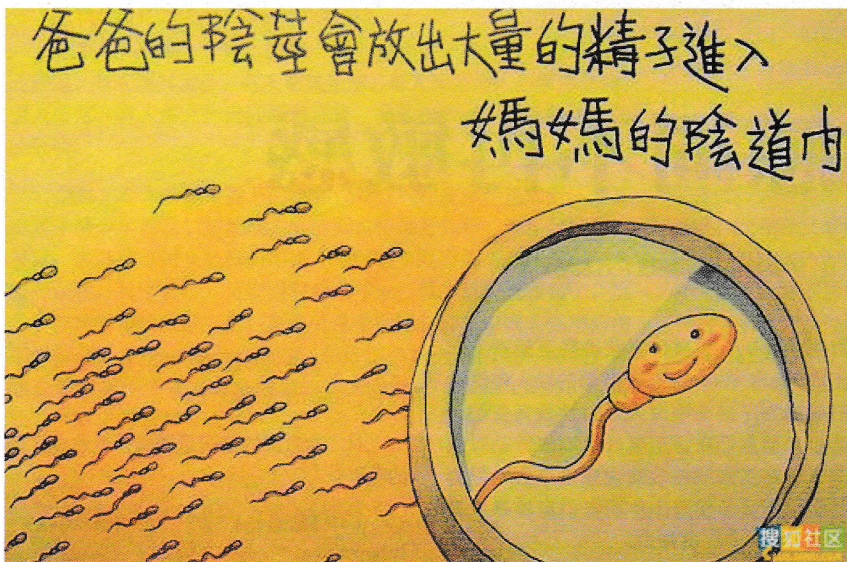 爸爸的陰莖會放出大量的精子進入
媽媽的陰道內
搜狐社区